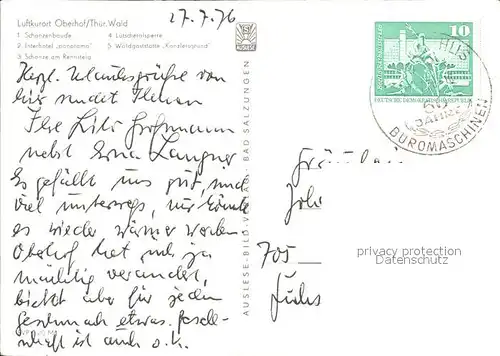 27.7.76
Luftkurort Oberhof/Thür. Wald
1 Schanzenbaude 4 Lütschetalsperre
2 Interhotel „panorama" 5 Waldgaststätte „Kanzlersgrund"
3 Schanze am Rennsteig
Herzl. Urlaubsgrüße von
hier sendet Ihnen
Ihre Hofmann
nebst Erna Langner
Es gefällt uns gut, sind
viel unterwegs, nur könnte
es wieder wärmer werden
Oberhof hat sich ja
mächtig verändert,
bietet aber für jeden
Geschmack etwas.
ist auch o.k.
AUSLESE-BILD-VERLAG · BAD SALZUNGEN
10
DEUTSCHE DEMOKRATISCHE REPUBLIK
JAHRE
BÜROMASCHINEN
Fräulein
705
privacy protection
Datenschutz